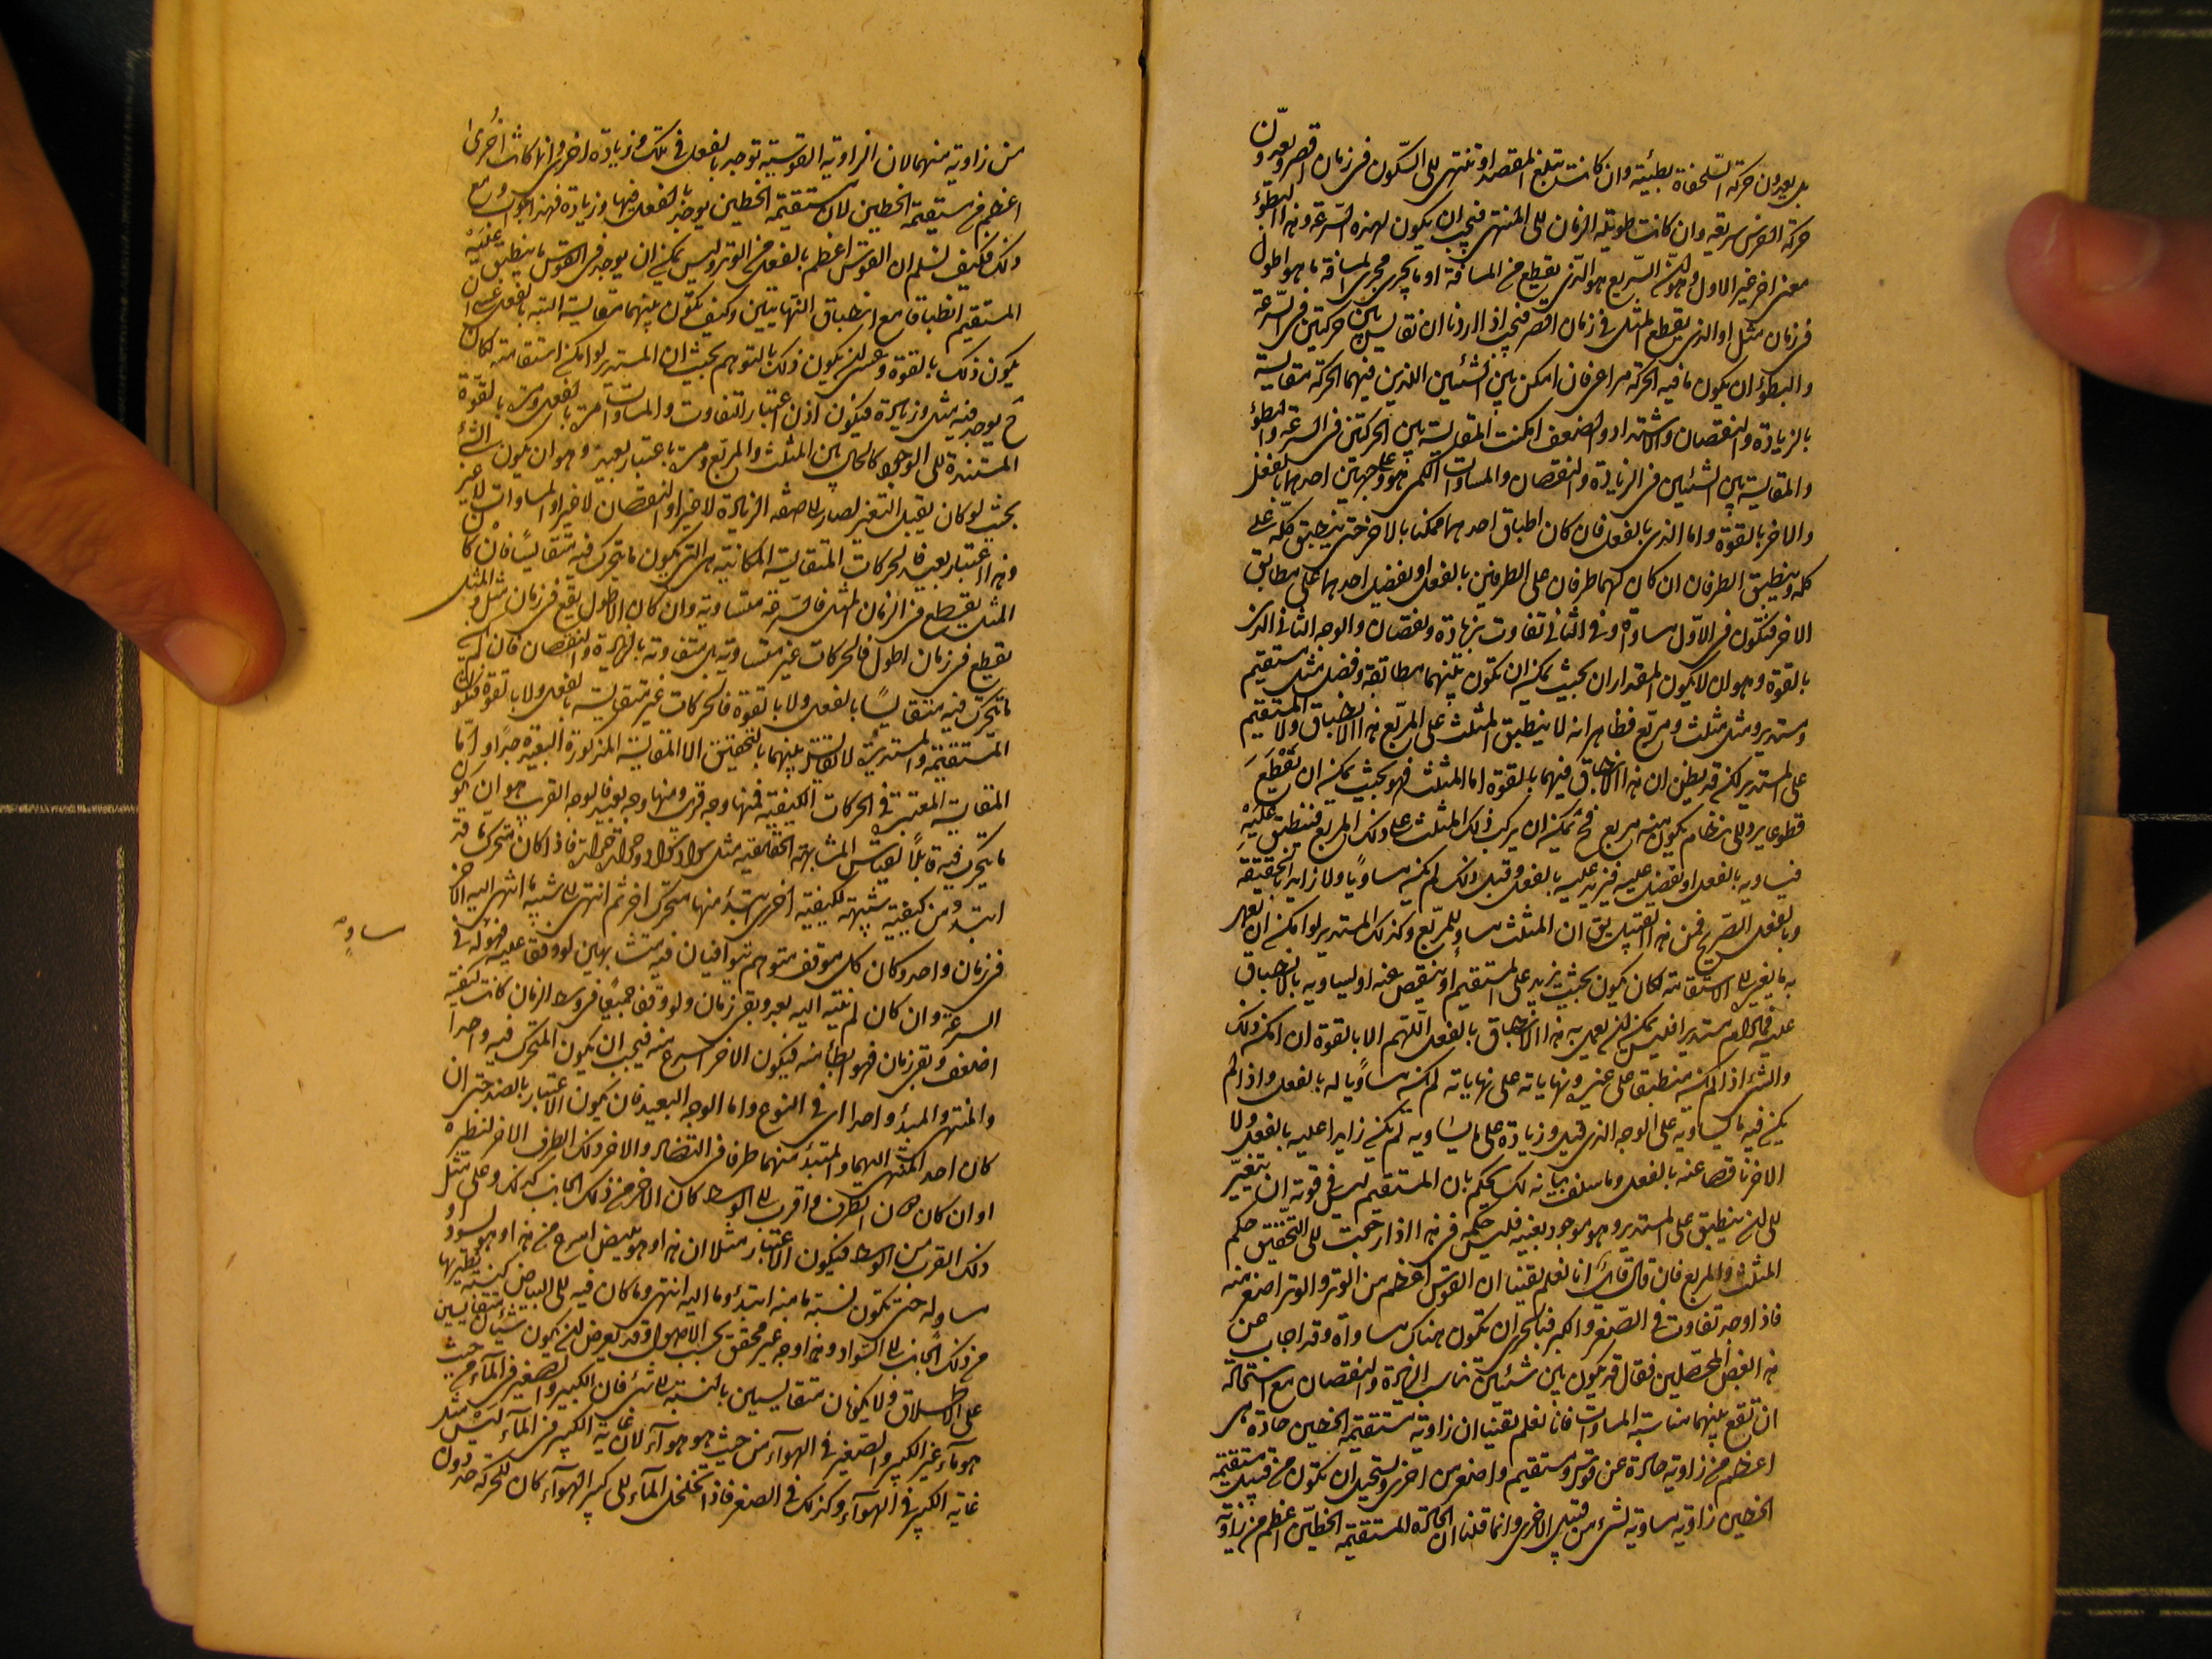 بل يعدون حركة السلحفاة بطيئة وان كانت تبلغ المقصد او تنتهى الى السكون فى زمان اقصر ويعدون
حركة الفرس سريعة وان كانت طويلة الزمان الى المنتهى فيجب ان يكون لهذه السرعة وهذا البطؤ
معنى اخر غير الاول وهو ان السريع هو الذى يقطع من المسافة او ما يجرى مجرى المسافة ما هو اطول
فى زمان مثل او الذى يقطع المثل فى زمان اقصر فيجب اذا اردنا ان نقايس بين حركتين فى السرعة
والبطؤ ان يكون ما فيه الحركة مراعى فان امكن بين الشيئين اللذين فيهما الحركة مقايسة
بالزيادة والنقصان والاشتداد والضعف امكنت المقايسة بين الحركتين فى السرعة والبطؤ
والمقايسة بين الشيئين فى الزيادة والنقصان والمساوات الكمى هو على وجهين احدهما بالفعل
والاخر بالقوة واما الذى بالفعل فان كان اطباق احدهما ممكنا بالاخر حتى ينطبق كله على
كله وينطبق الطرفان ان كان لهما طرفان على الطرفين بالفعل او يفضل احدهما على مطابق
الاخر فتكون فى الاول مساواة وفى الثانى تفاوت بزيادة ونقصان والوجه الثانى الذى
بالقوة وهو ان لا يكون المقداران بحيث يمكن ان تكون بينهما مطابقة وفضل مثل مستقيم
ومستدير ومثل مثلث ومربع فظاهر انه لا ينطبق المثلث على المربع هذا الانطباق ولا المستقيم
على المستدير لكن قد يظن ان هذا الانطباق فيهما بالقوة اما المثلث فهو بحيث يمكن ان تقطع
قطوعا يرد الى نظام يكون منه مربع فح يمكن ان يركب ذلك المثلث على ذلك المربع فينطبق عليه
فيساويه بالفعل او يفضل عليه فيزيد عليه بالفعل وقبل ذلك لم يكن مساويا ولا زايدا بالحقيقة
وبالفعل الصريح فمن هذا القبيل يق ان المثلث مساو للمربع وكذلك المستدير لو امكن ان يعمل
به ما يغيره الى الاستقامة لكان يكون بحيث يزيد على المستقيم او ينقص عنه او يساويه بالانطباق
عليه فما دام مستديرا فليس يمكن ان يعمل به هذا الانطباق بالفعل اللهم الا بالقوة ان امكن ذلك
والشئ اذا لم يكن منطبقا على غيره ونهاياته على نهاياته لم يكن مساويا له بالفعل واذا لم
يكن فيه ما يساويه على الوجه الذى قيل وزيادة على ما يساويه لم يكن زايدا عليه بالفعل ولا
الاخر ناقصا عنه بالفعل وما سلف بيانه لك يحكم بان المستقيم ليس فى قوته ان يتغير
الى ان ينطبق على المستدير وهو موجود بعينه فليس حكمه فى هذا اذا رجعت الى التحقيق حكم
المثلث والمربع فان قال قائل انا نعلم يقينا ان القوس اعظم من الوتر والوتر اصغر منه
فاذا وجد تفاوت فى الصغر والكبر فبالحرى ان تكون هناك مساواة وقد اجاب عن
هذا بعض المحصلين فقال قد يكون بين شيئين تناسب الزيادة والنقصان مع استحالة
ان تقع بينهما مناسبة المساوات فانا نعلم يقينا ان زاوية مستقيمة الخطين حادة هى
اعظم من زاوية حادة عن قوس ومستقيم واصغر من اخرى ويستحيل ان تكون من قبيل مستقيمة
الخطين زاوية مساوية لشئ من قبيل الاخرى وانما قلنا ان الحادة المستقيمة الخطين اعظم من زاوية
من زاوية منهما لان الزاوية القوسية توجد بالفعل فى تلك وزيادة اخرى وانها كانت اخرى
اعظم من مستقيمة الخطين لان مستقيمة الخطين يوجد بالفعل فيها وزيادة فهذا الجواب ومع
ذلك فكيف نسلم ان القوس اعظم بالفعل من الوتر وليس يمكن ان يوجد فى القوس ما ينطبق عليه
المستقيم انطباقا مع انطباق النهايتين وكيف تكون بينهما مقايسة البتة بالفعل عسى ان
يكون ذلك بالقوة وعسى ان يكون ذلك بالتوهم بحيث ان المستدير لو امكن استقامته لكان
ح يوجد فيه مثل وزيادة فيكون اذن اعتبار التفاوت والمساوات مرة بالفعل ومرة بالقوة
المستندة الى الوجود كالحال بين المثلث والمربع ومرة باعتبار بعيد وهو ان يكون الشئ
بحيث لو كان يقبل التغير لصار الى صفة الزيادة لاخير او النقصان لاخير او المساوات لا غير
وهذا اعتبار بعيد فالحركات المتقايسة المكانية هى التى يكون ما يتحرك فيه متقايسا فان كان
المثل يقطع فى الزمان المثل فالسرعة متساوية وان كان الاطول يقع فى زمان مثل والمثل
يقطع فى زمان اطول فالحركات غير متساوية بل متفاوتة بالزيادة والنقصان فان لم يكن
ما يتحرك فيه متقايسا بالفعل ولا بالقوة فالحركات غير متقايسة بالفعل ولا بالقوة فتكون
المستقيمة والمستديرة لا تقايس بينهما بالتحقيق الا المقايسة المذكورة البعيدة جدا واما
المقايسة المعتبرة فى الحركات الكيفية فمنها وجه قريب ومنها وجه بعيد فالوجه القريب هو ان يكون
ما يتحرك فيه قابلا لقياس المشابهة الحقيقية مثل سواد وسواد وحرارة وحرارة فاذا كان متحرك ما قد
ابتدء من كيفية شبيهة لكيفية اخرى ابتدء منها متحرك اخر ثم انتهى الى شبيه ما انتهى اليه الاخر
فى زمان واحد وكان كل موقف متوهم يتوافيان فيه متشابهين لو وقفا عليه فهو له فى
مساوٍ
السرعة وان كان لم ينته اليه بعد وبقى زمان ولو وقفا جميعا فى وسط الزمان كانت كيفيته
اضعف وبقى زمان فهو ابطأ منه فيكون الاخر اسرع منه فيجب ان يكون المتحرك فيه واحدا
والمنتهى والمبدؤ واحدا اى فى النوع واما الوجه البعيد فان يكون الاعتبار بالضد حتى ان
كان احد المنتهى اليهما والمبتدء منهما طرفا فى التضاد والاخر ذلك الطرف الاخر لنظيره
او ان كان من الطرف واقرب الى الوسط كان الاخر من ذلك الجانب كذلك وعلى مثل
ذلك القرب من الوسط فيكون الاعتبار مثلا ان هذا هو يبيض اسرع من هذا وهو يسود او
مساو له حتى تكون نسبة ما منه ابتدء وما اليه انتهى وما كان فيه الى البياض كنسبة نظيرها
من ذلك الجانب الى السواد وهذا وجه غير محقق بحسب الاصول وقد يعرض ان يكون شيئان متقايسين
على الاطلاق ولا يكونان متقايسين بالنسبة الى شئ فان الكبير والصغير فى الماء من حيث
هو ماء غير الكبير والصغير فى الهواء من حيث هو هواء لان غاية الكبير فى الماء ليس مثل
غاية الكبير فى الهواء وكذلك فى الصغر فاذا تخلخل الماء الى كبر الهواء كان للحركة حد دون